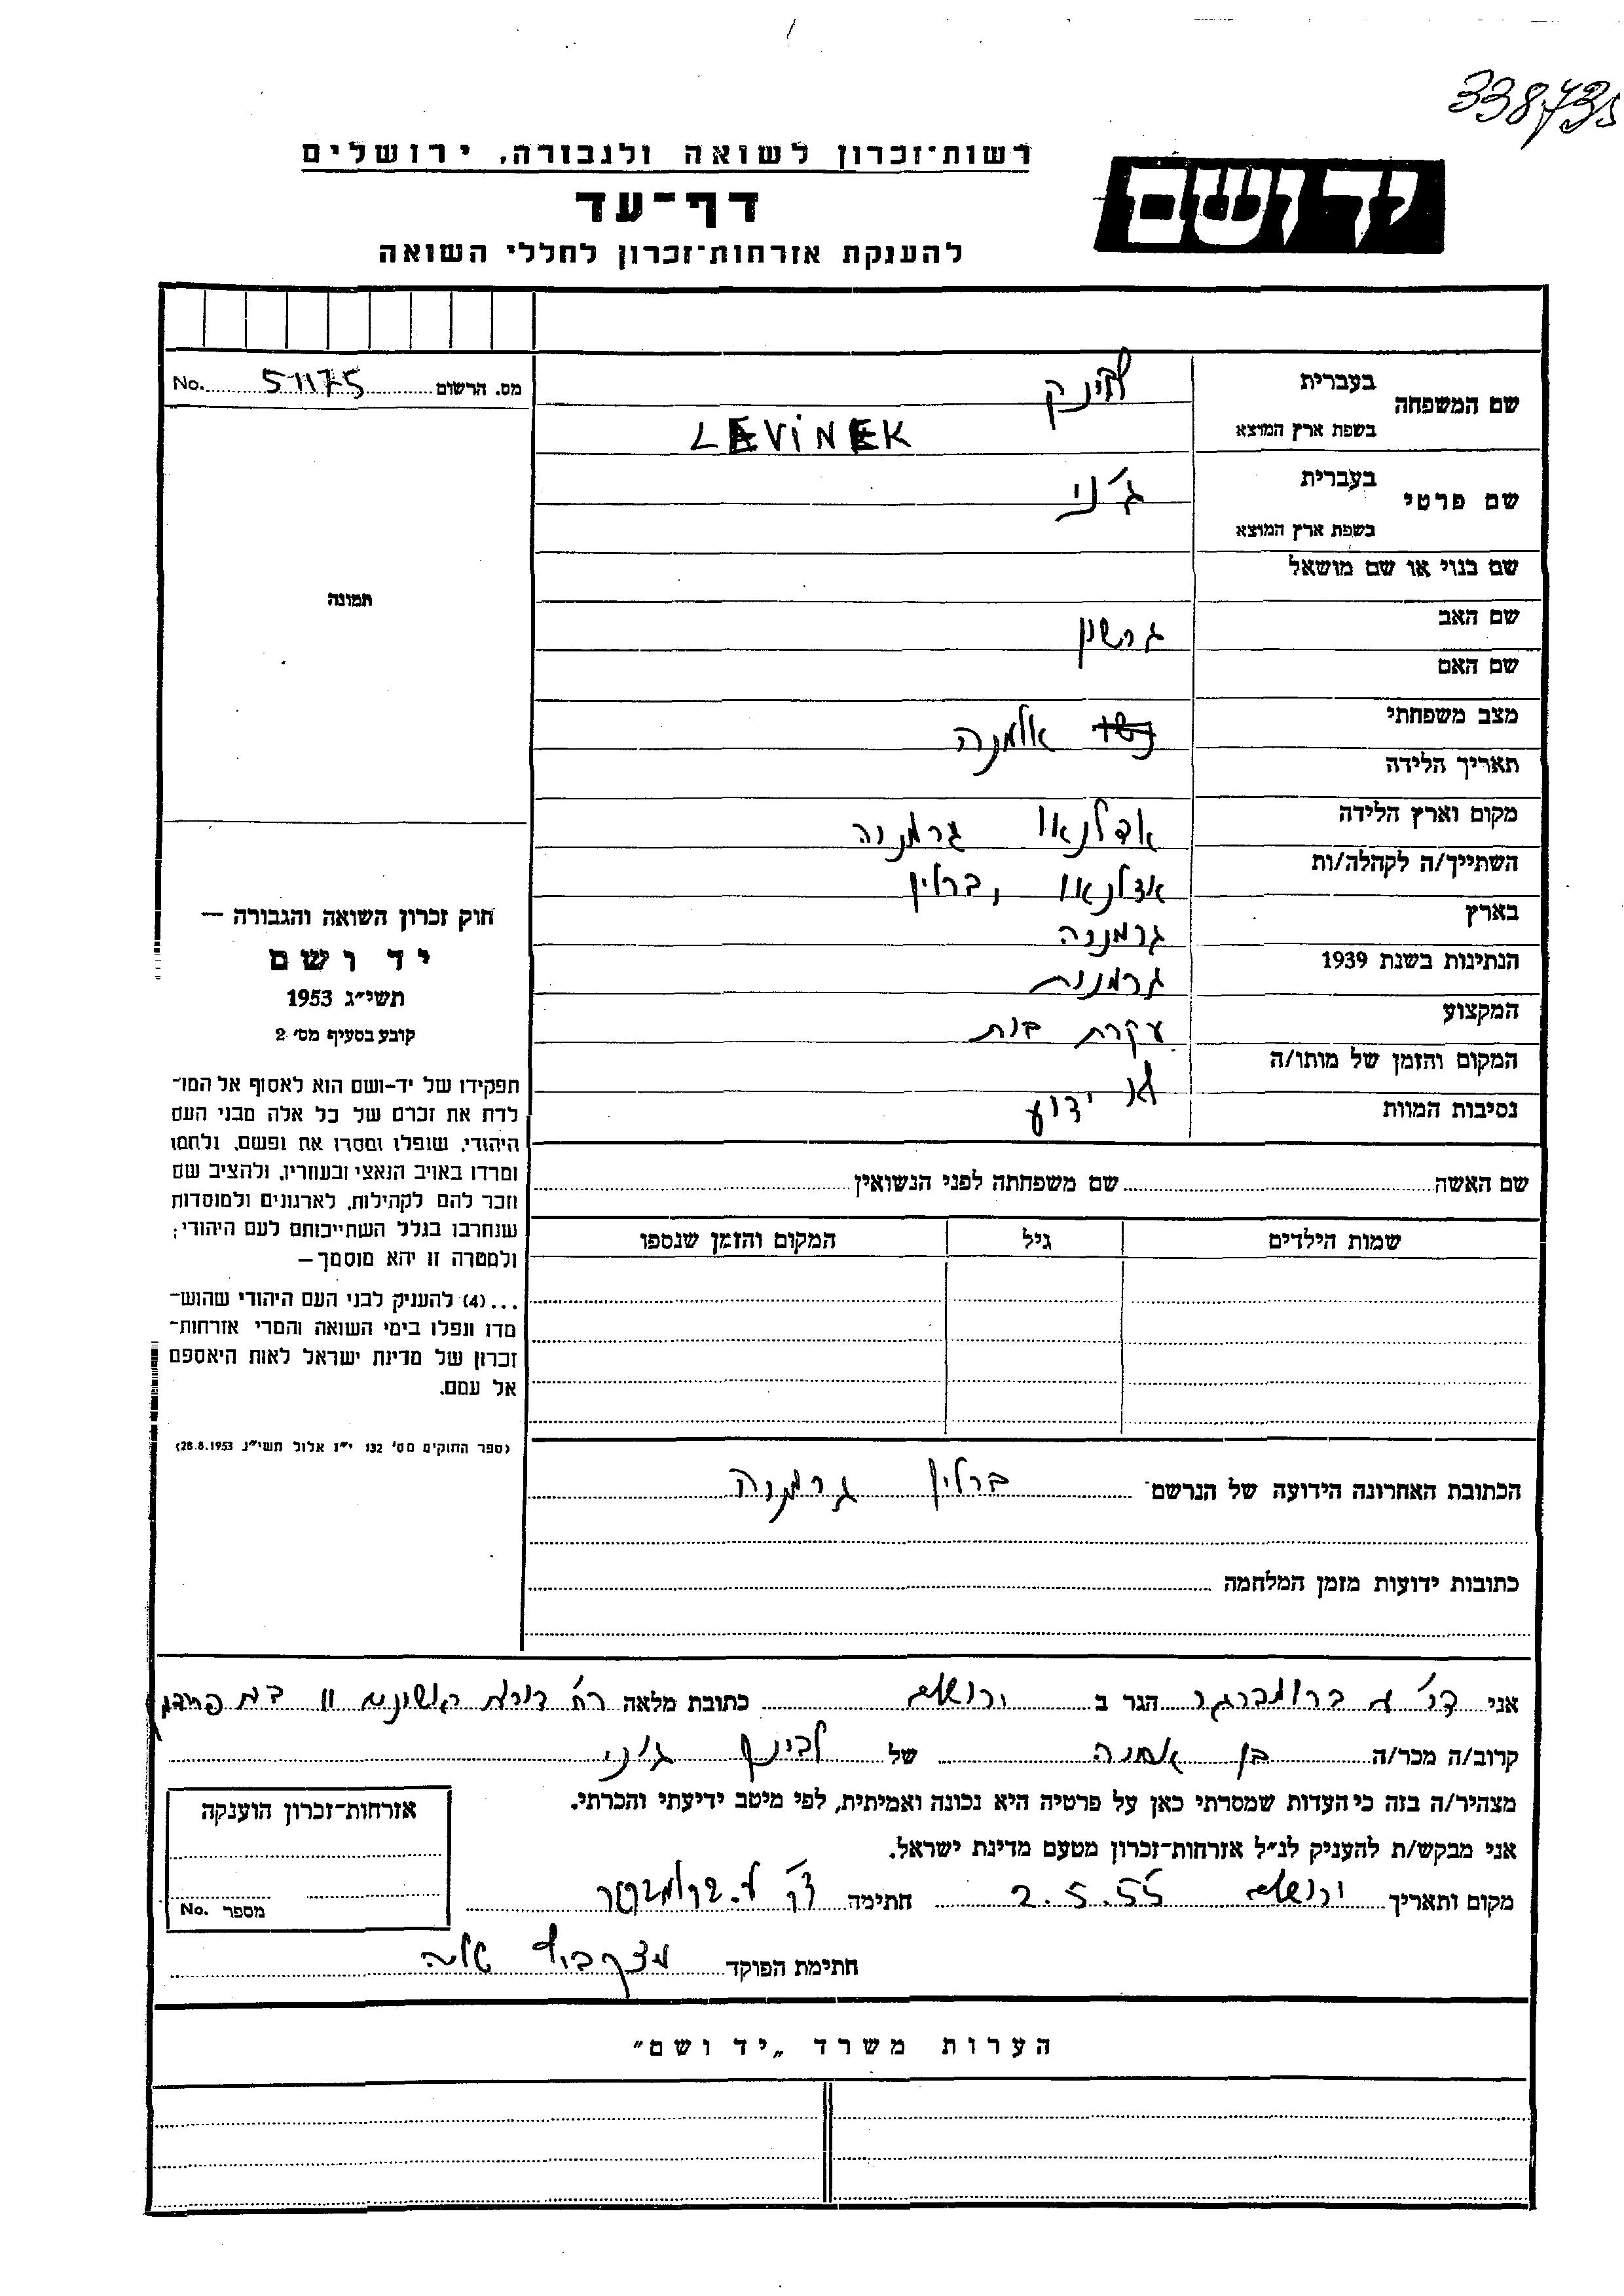 338735
רשות־זכרון לשואה ולגבורה, ירושלים
יד ושם
דף־עד
להענקת אזרחות־זכרון לחללי השואה
מס. הרשום 51175 No.
שם המשפחה בעברית לוינק
בשפת ארץ המוצא LEVINEK
שם פרטי בעברית ג'ני
בשפת ארץ המוצא
שם בנוי או שם מושאל
שם האב גרשון
שם האם
מצב משפחתי אלמנה
תאריך הלידה
מקום וארץ הלידה אדלנאו גרמניה
השתייך/ה לקהלה/ות אדלנאו, ברלין
בארץ גרמניה
הנתינות בשנת 1939 גרמנית
המקצוע עקרת בית
המקום והזמן של מותו/ה
נסיבות המוות לא ידוע
תמונה
חוק זכרון השואה והגבורה —
יד ושם
תשי״ג 1953
קובע בסעיף מס׳ 2
תפקידו של יד-ושם הוא לאסוף אל המו־
לדת את זכרם של כל אלה מבני העם
היהודי, שנפלו ומסרו את נפשם, ולחמו
ומרדו באויב הנאצי ובעוזריו, ולהציב שם
וזכר להם לקהילות, לארגונים ולמוסדות
שנחרבו בגלל השתייכותם לעם היהודי;
ולמטרה זו יהא מוסמך —
...(4) להעניק לבני העם היהודי שהוש־
מדו ונפלו בימי השואה והמרי אזרחות־
זכרון של מדינת ישראל לאות היאספם
אל עמם.
(ספר החוקים מס׳ 132 י״ז אלול תשי״ג 28.8.1953)
שם האשה שם משפחתה לפני הנשואין
שמות הילדים גיל המקום והזמן שנספו
הכתובת האחרונה הידועה של הנרשם ברלין גרמניה
כתובות ידועות מזמן המלחמה
אני ד"ר א ברומברגר הגר ב ירושלים כתובת מלאה רח' דורות ראשונים 11
קרוב/ה מכר/ה בן אחיה של לוינק ג'ני
מצהיר/ה בזה כי העדות שמסרתי כאן על פרטיה היא נכונה ואמיתית, לפי מיטב ידיעתי והכרתי.
אני מבקש/ת להעניק לנ״ל אזרחות־זכרון מטעם מדינת ישראל.
מקום ותאריך ירושלים 2.5.55 חתימה ד"ר א. ברומברגר
חתימת הפוקד
אזרחות־זכרון הוענקה
מספר No.
הערות משרד „יד ושם"